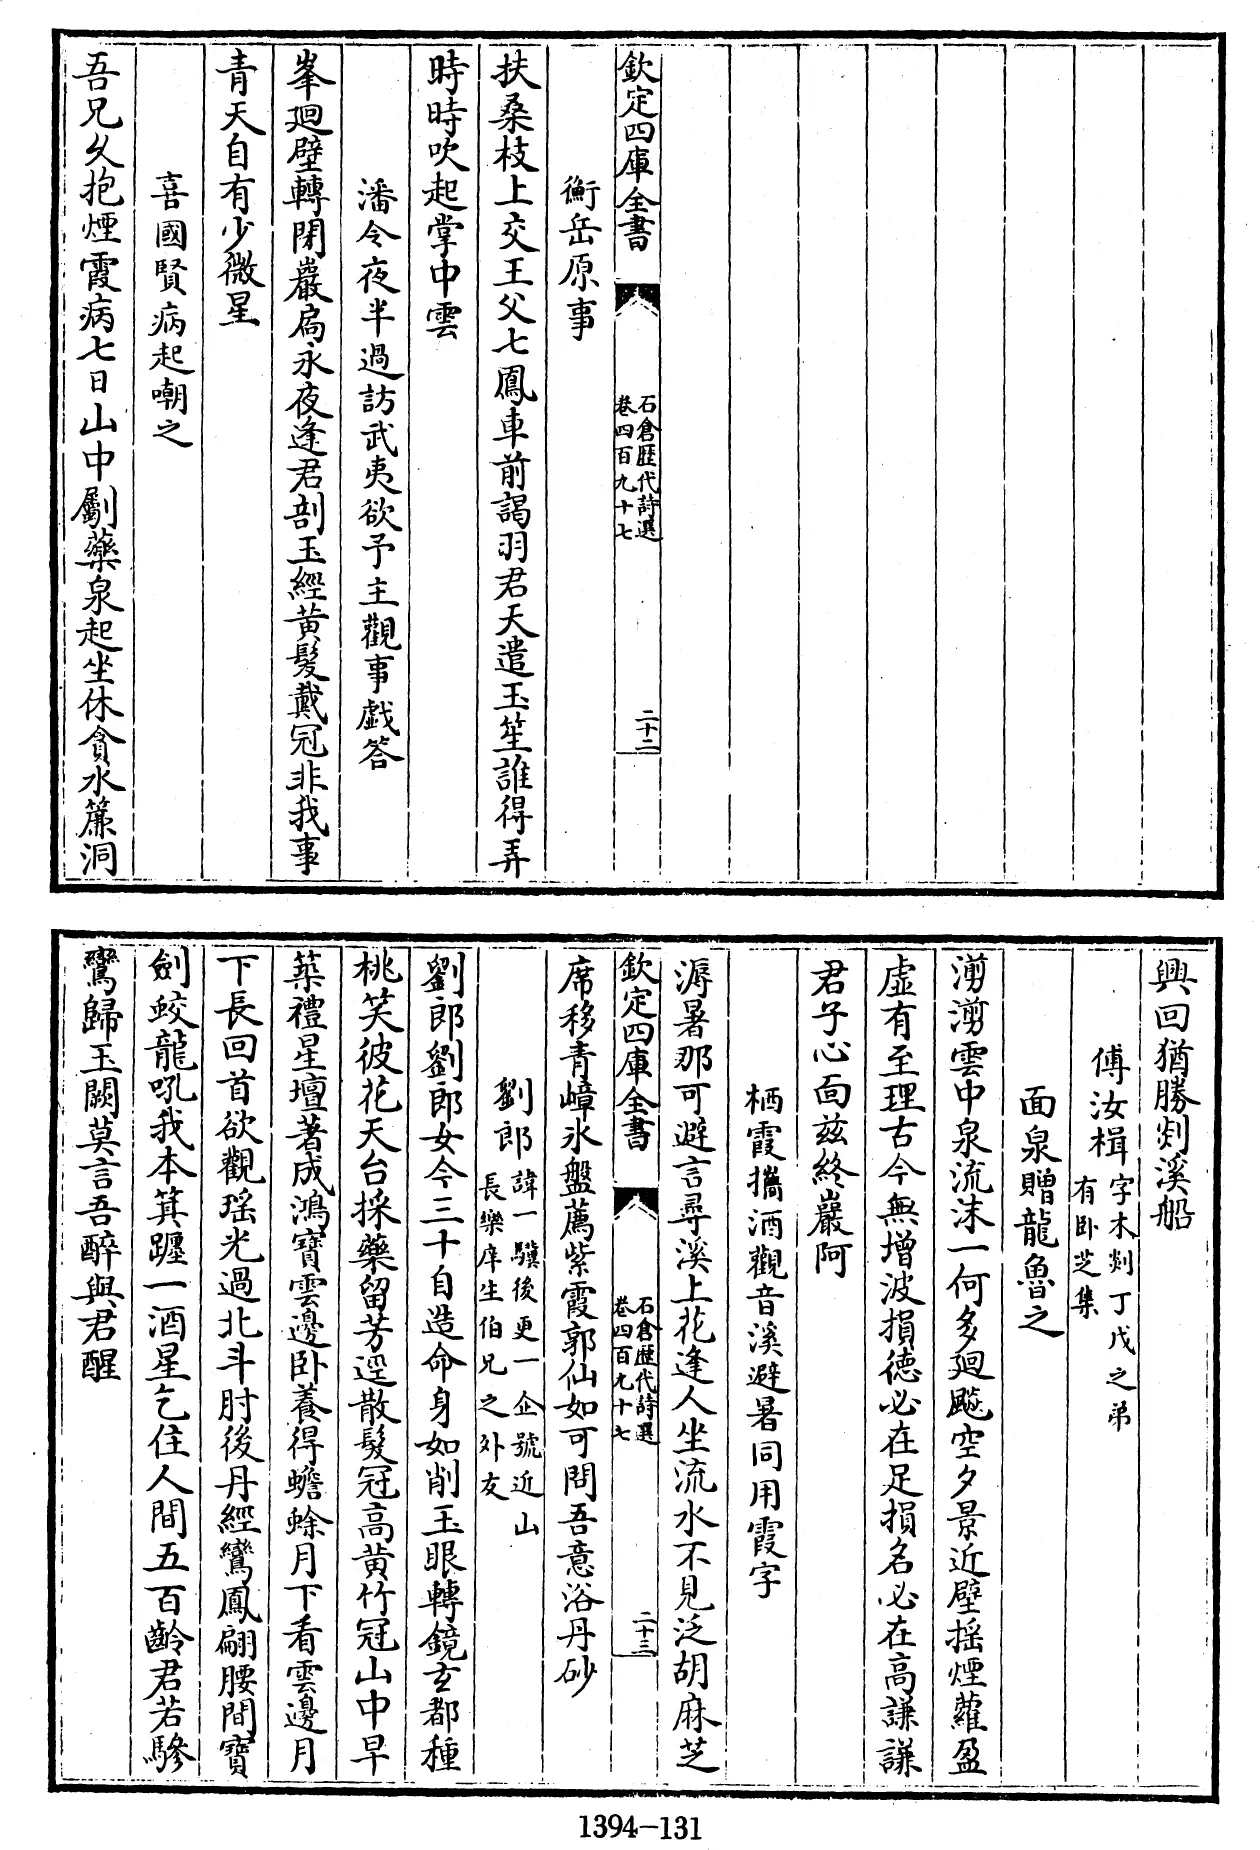 欽定四庫全書
石倉歷代詩選
卷四百九十七
二十二
衡岳原事
扶桑枝上交王父七鳳車前謁羽君天遣玉笙誰得弄
時時吹起掌中雲
潘令夜半過訪武夷欲予主觀事戱答
峯廻壁轉閉巖扃永夜逢君剖玉經黄髮戴冠非我事
青天自有少微星
喜國賢病起嘲之
吾兄久抱煙霞病七日山中劚藥泉起坐休貪水簾洞
興回猶勝剡溪船
傅汝楫字木剡丁戊之弟
有卧芝集
面泉贈龍魯之
湧湧雲中泉流沫一何多廻飈空夕景近壁揺煙蘿盈
虚有至理古今無增波損德必在足損名必在高謙謙
君子心面兹終巖阿
栖霞攜酒觀音溪避暑同用霞字
溽暑那可避言尋溪上花逢人坐流水不見泛胡麻芝
欽定四庫全書
石倉歷代詩選
卷四百九十七
二十三
席移青嶂氷盤薦紫霞郭仙如可問吾意浴丹砂
劉郎諱一驥後更一企號近山
長樂庠生伯兄之外友
劉郎劉郎女今三十自造命身如削玉眼轉鏡玄都種
桃笑彼花天台採藥留芳逕散髮冠高黄竹冠山中早
築禮星壇著成鴻寶雲邊卧養得蟾蜍月下看雲邊月
下長回首欲觀瑶光過北斗肘後丹經鸞鳳翩腰間寶
劍蛟龍吼我本箕躔一酒星乞住人間五百齡君若驂
鸞歸玉闕莫言吾醉與君醒
1394-131